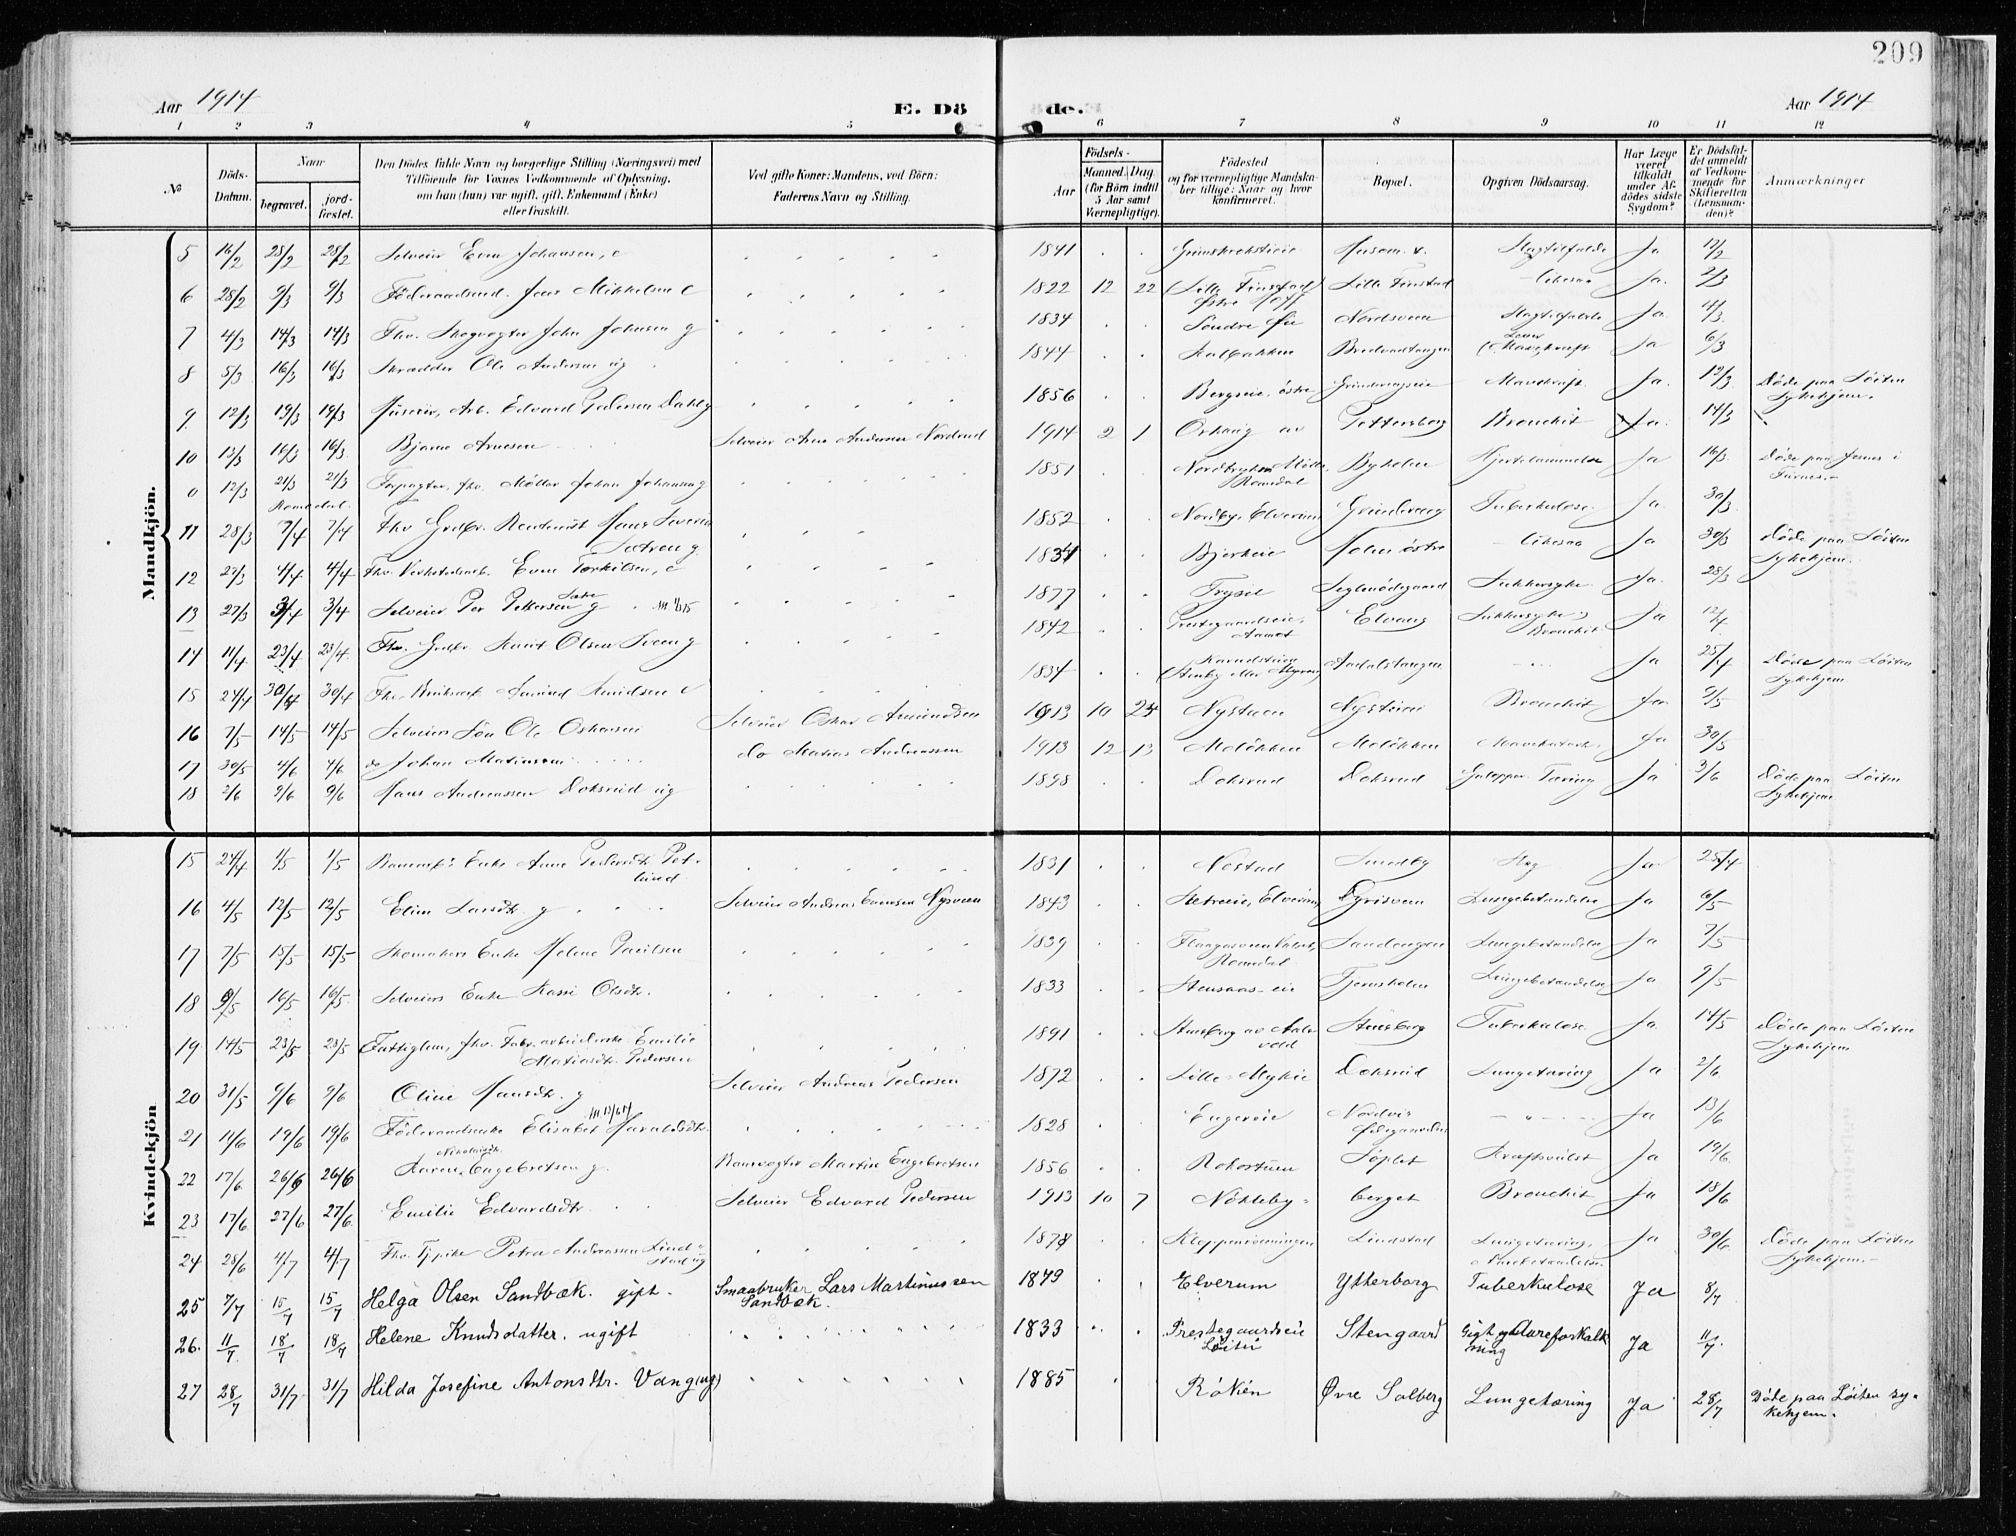 209
Aar 1914
E. Dö
de.
Aar 1914
1 2 3 4 5 6 7 8 9 10 11 12
№
Döds-
Datum.
Naar
begravet.
jord-
fæstet.
Den Dödes fulde Navn og borgerlige Stilling (Næringsvei) med
Tilföiende for Voxnes Vedkommende af Oplysning,
om han (hun) var ugift, gift, Enkemand (Enke)
eller fraskilt.
Ved gifte Koner: Mandens, ved Börn:
Faderens Navn og Stilling.
Födsels-
Aar
Maaned. Dag
(for Börn indtil
5 Aar samt
Værnepligtige).
Födested
og for værnepligtige Mandska-
ber tillige: Naar og hvor
konfirmeret.
Bopæl.
Opgiven Dödsaarsag.
Har Læge
været
tilkaldt
under Af-
dödes sidste
Sygdom?
Er Dödsfal-
det anmeldt
af Vedkom-
mende for
Skifteretten
(Lensman-
den)?
Anmærkninger
Mandkjön.
5 16/2 28/2 28/2 Selveier Even Johansen, e 1841 Slagtilfælde Ja 17/2
6 28/2 9/3 9/3 Föderaadsmd. Jens Mikkelsen e 1822 12 22 (Lille Finstad) Lille Finstad Ja. 2/3
7 4/3 14/3 14/3 Fhv. Skogvogter John Johnsen g 1834 Söndre Nordsveen Slagtilfælde Ja 4/3
8 5/3 16/3 16/3 Skrædder Ole Andersen ug 1844 Kalbakken Bredvadtangen Ja 6/3
9 12/3 19/3 19/3 Arb. Edvard Pedersen Dahl g 1856 Bergseie, östre Grinderengseie Mavekræft Ja. 12/3 Döde paa Löiten
Sykehjem.
10 13/3 16/3 16/3 Bjarne Arnesen Selveier Arne Andersen Nordrud 1914 2 1 Pettersborg Bronchit Ja. 14/3
0 12/3 21/3 21/3 Forpagter, fhv. Möller Johan Johansen g 1851 Romedal Byholen Hjertelammelse Ja 16/3 Döde paa Jesnes i
Furnes.
Romedal.
11 28/3 7/4 7/4 Fhv Grdbr. Hans Severin
Sætren g. 1852 Nordby, Elverum Grindereng Tuberkulose Ja. 30/3
12 27/3 4/4 4/4 Fhv. Verkstedsarb. Even Torkilsen, e 1834 Bjerkeie Holm östre Ja 30/3 Döde paa Löiten
Sykehjem.
13 27/3 3/4 3/4 Selveier Per Pettersen g 1877 Trysil Seglmödegaard Sukkersyke Ja 28/3
14 11/4 23/4 23/4 Fhv. Grdbr Knut Olsen Sveen g 1842 Prestegaardseie,
Aamot Elvang Sukkersyke,
Bronchit Ja 12/4
15 24/4 30/4 30/4 Amund Amundsen e 1834 Aadalstangen Ja 25/4 Döde paa Löiten
Sykehjem.
16 7/5 14/5 14/5 Selveiers Sön Ole Oskarsen Selveier Oskar Amundsen 1913 10 24 Nystuen Nystuen Bronchit Ja 9/5
17 30/5 4/6 4/6 do Johan Matiassen Do Matias Andreassen 1913 12 13 Molökken Molökken Mavekatarh Ja 30/5
18 2/6 9/6 9/6 Hans Andreassen Doksrud ug 1898 Doksrud Doksrud Galopper. Tæring Ja 3/6 Döde paa Löiten
Sykehjem
Kvindekjön
15 24/4 1/5 1/5 Enke Anne Pedersdtr. Pet-
lund. 1831 Nestad Sundby Slag Ja 25/4
16 4/5 12/5 12/5 Eline Larsdtr. g Selveier Andreas Evensen Nysveen 1843 Sætreeie, Elverum Grisveen Lungebetændelse Ja 6/5
17 7/5 15/5 15/5 Skomakers Enke Helene Paulsen 1839 Romedal Sandengen Lungebetændelse Ja 7/5
18 9/5 16/5 16/5 Selveiers Enke Kari Olsdtr. 1833 Stensaas-eie Tjernsholen Lungebetændelse Ja 9/5
19 14/5 23/5 23/5 Fattiglem, fhv. Fabr.arbeiderske Emilie
Matiasdtr. Pedersen 1891 Stensberg av Aals-
vold Stensberg Tuberkulose Ja 14/5 Döde paa Löiten
Sykehjem
20 31/5 9/6 9/6 Oline Hansdtr. g Selveier Andreas Pedersen 1872 Lille-Mykie Doksrud Lungetæring Ja 2/6
21 14/6 19/6 19/6 Föderaadsenke Elisabet Haraldsdtr. 1828 Engereie Ja 13/6
22 17/6 26/6 26/6 Karen Nikolaisdtr. Engebretsen g. Banevogter Martin Engebretsen 1856 Rokostuen Söplet Kræftsvulst Ja 19/6
23 17/6 27/6 27/6 Emilie Edvardsdtr. Selveier Edvard Pedersen 1913 10 7 Nökleby- berget Bronchit Ja 18/6
24 28/6 4/7 4/7 Fhv. Tj.pike Petra Andreassen Lind-
stad ug 1878 Kleppenrönningen Lindstad Lungetæring, Ja 30/6 Döde paa Löiten
Sykehjem.
25 7/7 15/7 15/7 Helga Olsen Sandbæk. gift. Smaabruker Lars Martinussen
Sandbæk. 1879 Elverum Ytterborg Tuberkulose Ja 8/7
26. 11/7 18/7 18/7 Helene Knudsdatter. ugift 1833 Prestegaardseie
Löiten Stengaard Gigt og Aareforkalk
ning Ja 11/7.
27 28/7 31/7 31/7 Hilda Josefine Antonsdtr. Vang (ug) 1885 Røkén Øvre Solberg Lungetæring Ja 28/7 Döde paa Löiten sy-
kehjem.